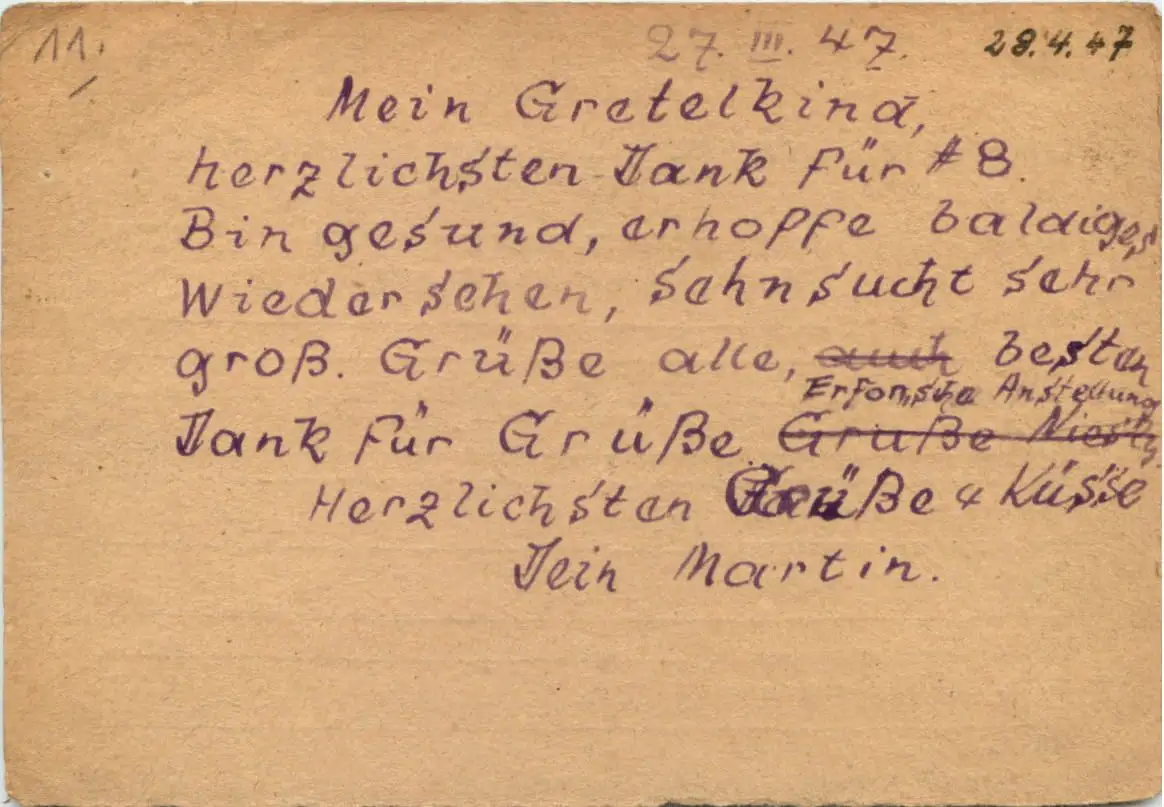 11.
27. III. 47. 29.4.47
Mein Gretelkind,
herzlichsten Dank für #8.
Bin gesund, erhoffe baldiges
Wiedersehen, Sehnsucht sehr
groß. Grüße alle, auch besten
Anstellung
Dank für Grüße. Grüße
Herzlichsten Grüße & Küsse
Dein Martin.